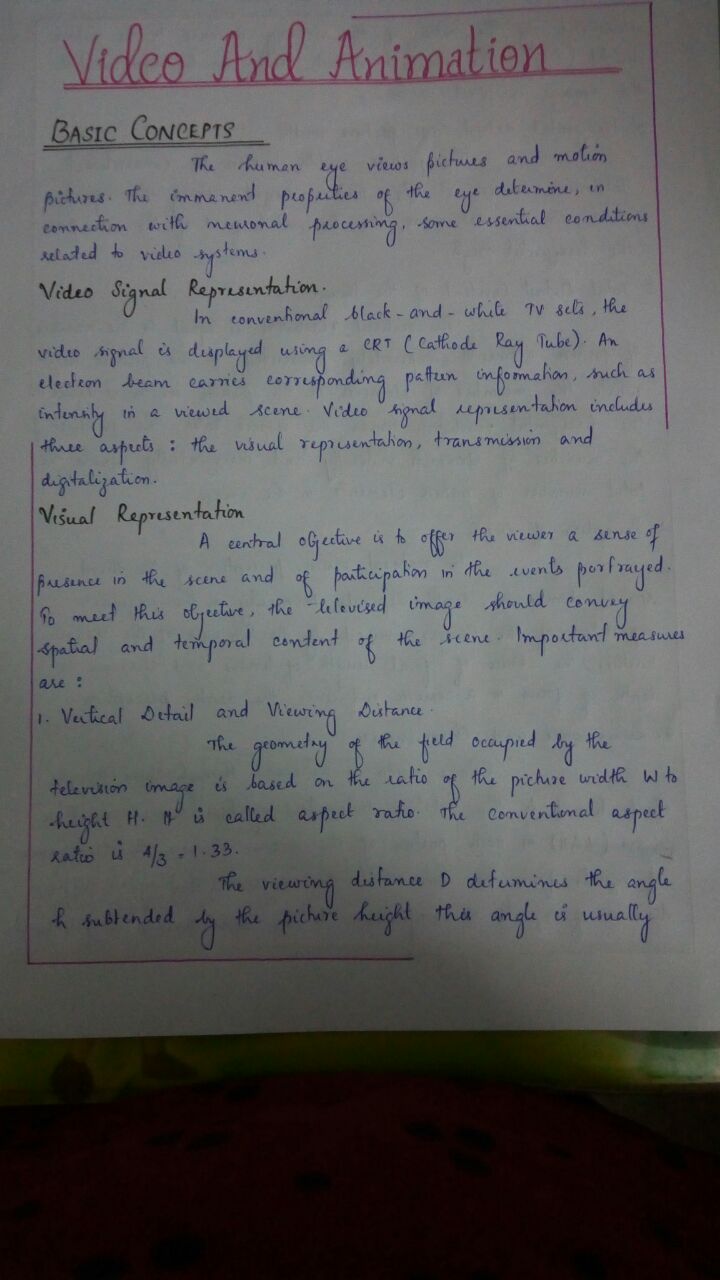 Video And Animation
BASIC CONCEPTS
The human eye views pictures and motion
pictures. The immanent properties of the eye determine, in
connection with neuronal processing, some essential conditions
related to video systems.
Video Signal Representation.
In conventional black-and-white TV sets, the
video signal is displayed using a CRT (Cathode Ray Tube). An
electron beam carries corresponding pattern information, such as
intensity in a viewed scene. Video signal representation includes
three aspects : the visual representation, transmission and
digitalization.
Visual Representation
A central objective is to offer the viewer a sense of
presence in the scene and of participation in the events portrayed.
To meet this objective, the televised image should convey
spatial and temporal content of the scene. Important measures
are :
1. Vertical Detail and Viewing Distance.
The geometry of the field occupied by the
television image is based on the ratio of the picture width W to
height H. It is called aspect ratio. The conventional aspect
ratio is 4/3 = 1.33.
The viewing distance D determines the angle
h subtended by the picture height this angle is usually